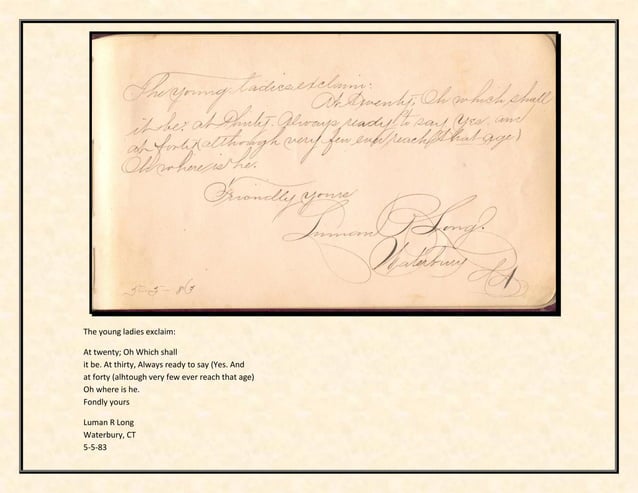 The young ladies exclaim:
At twenty; Oh which shall
it be; at thirty, Always ready to say Yes. and
at forty (although very few ever reach that age)
Oh where is he.
Friendly yours
Luman R Long.
Waterbury
5-5-83
The young ladies exclaim:
At twenty; Oh Which shall
it be. At thirty, Always ready to say (Yes. And
at forty (alhtough very few ever reach that age)
Oh where is he.
Fondly yours
Luman R Long
Waterbury, CT
5-5-83